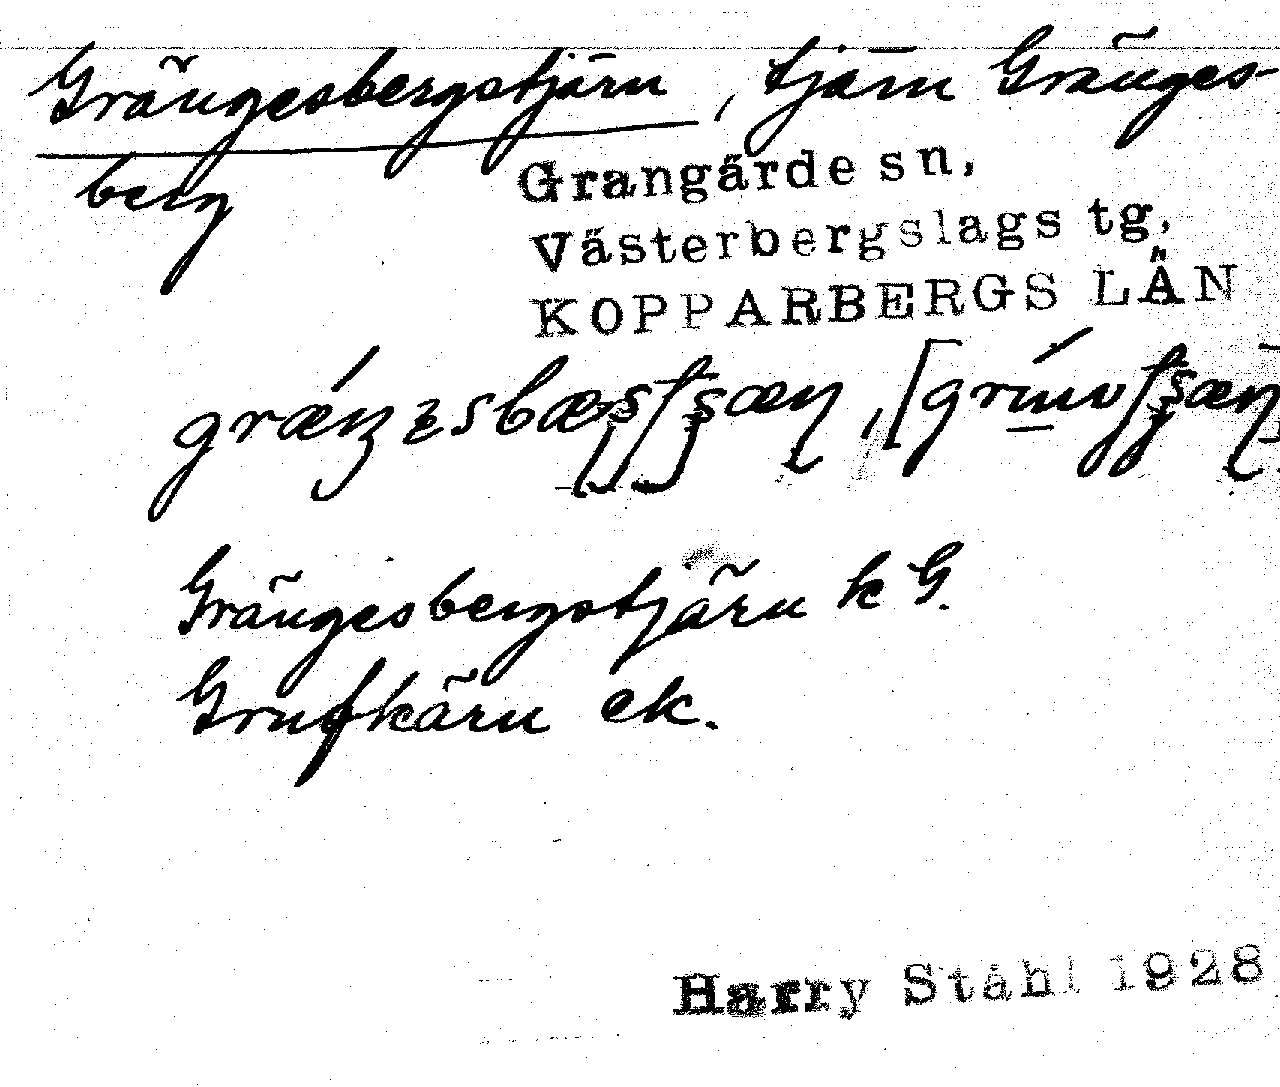 Grängesbergstjärn, tjärn Gränges-
berg
Grangärde sn,
Västerbergslags tg,
KOPPARBERGS LÄN
Grängesbergstjärn k G.
Grufkärn ek.
Harry Ståhl 1928